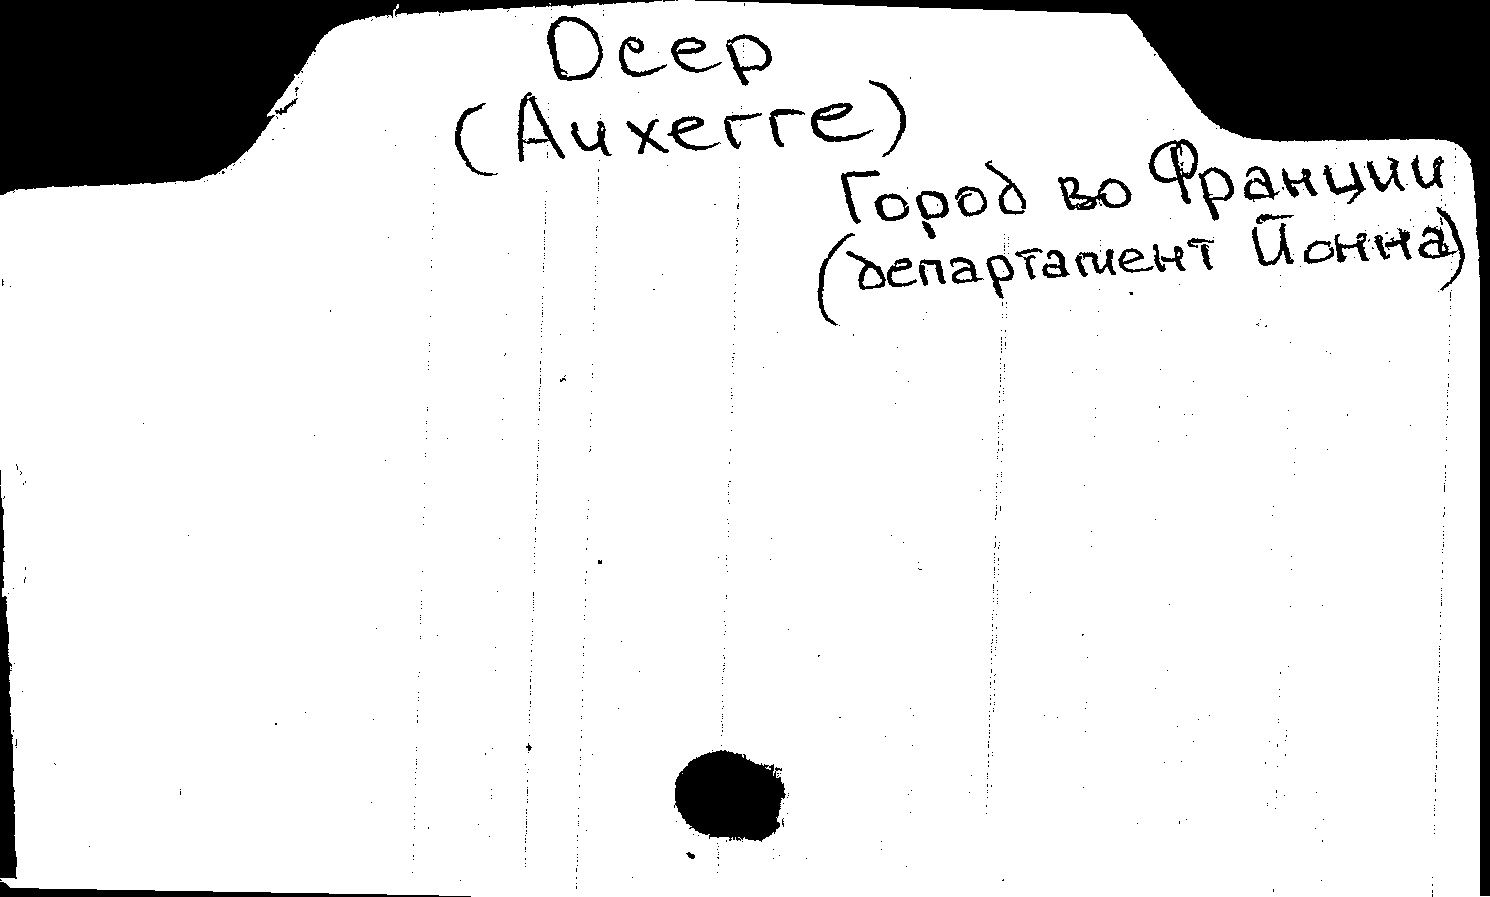 Осер
(Auxerre)
Город во Франции
(департамент Йонна)